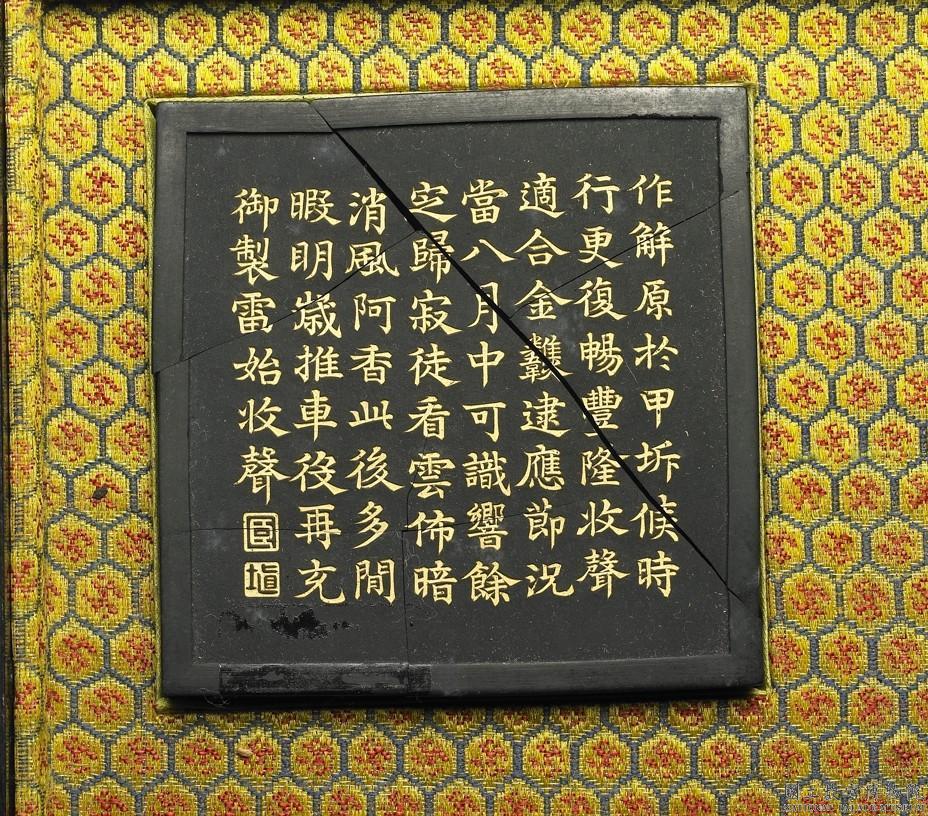 作解原於甲坼候時
行更復暢豐隆收聲
適合金韝逮應節況
當八月中可識響餘
㝎歸寂徒看雲佈暗
消風阿香此後多閒
暇明歲推車役再充
御製雷始收聲
國立故宮博物院